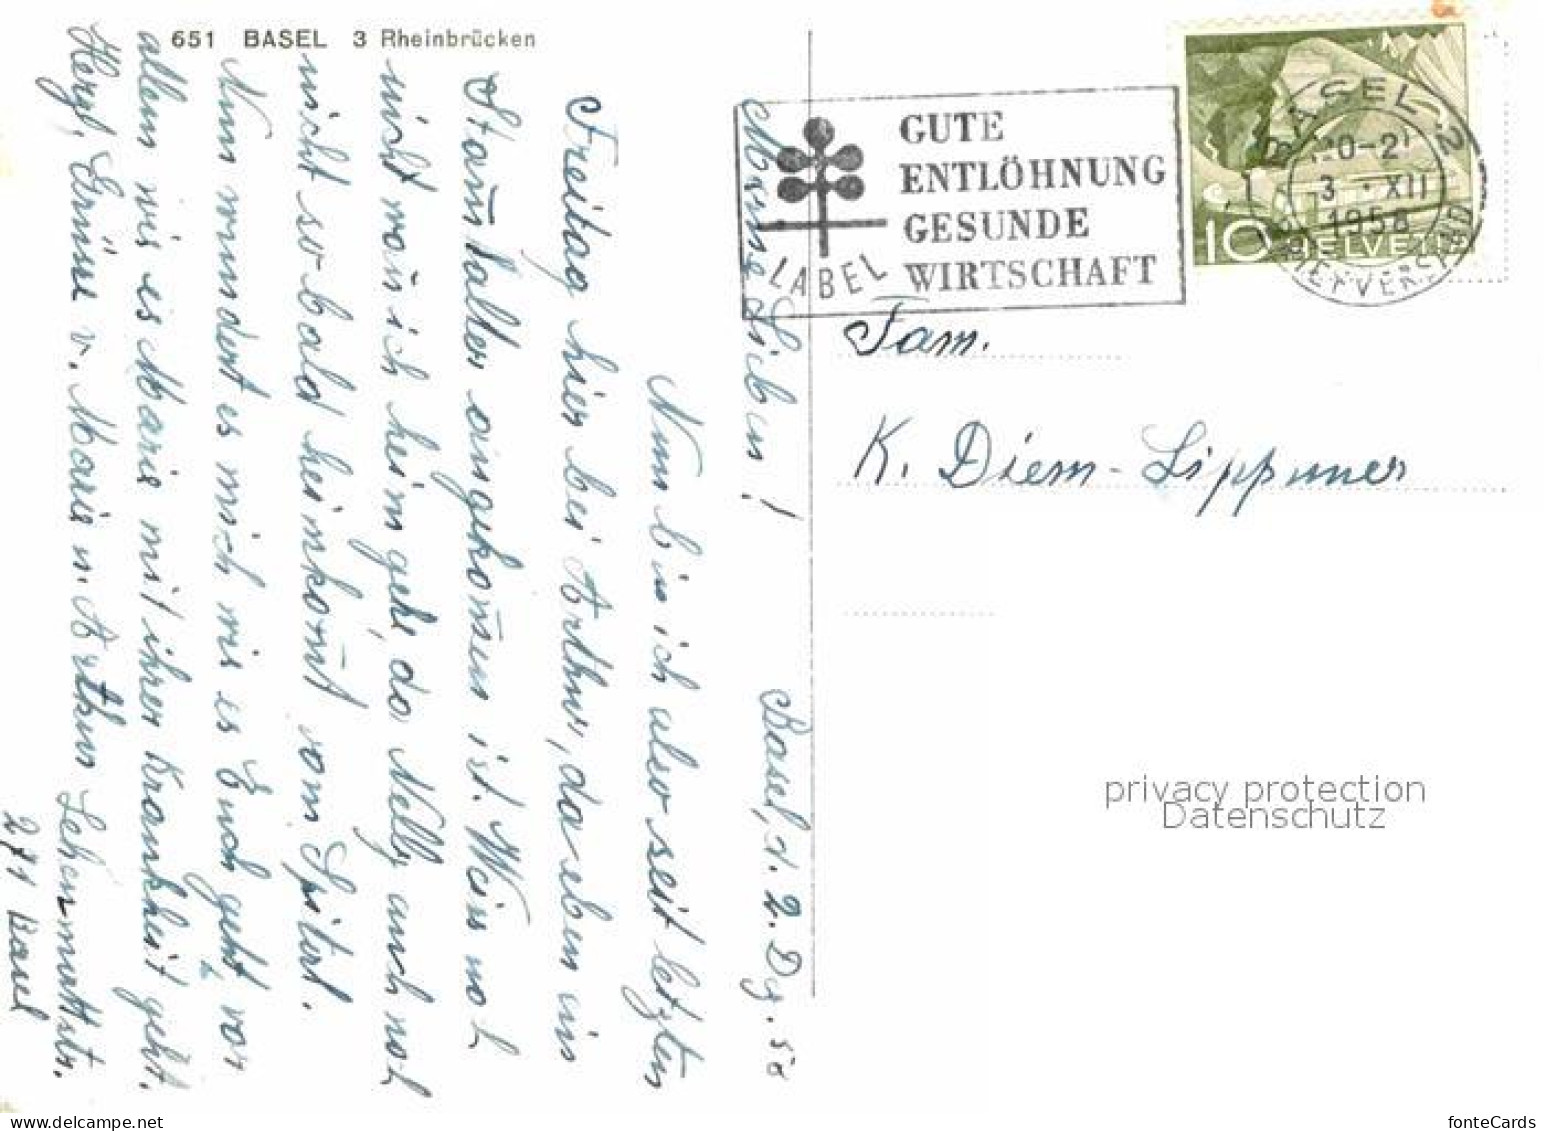 651 BASEL 3 Rheinbrücken
Basel, d. 2. Dez. 58
Meine Lieben!
Nun bin ich also seit letzten
Freitag hier bei Arthur, da eben ein
Stam̄halter angekom̄en ist. Weiss noch
nicht wan̄ ich heim gehe, da Nelly auch noch
nicht so bald heimkom̄t vom Spital.
Nun wundert es mich wie es Euch geht, vor
allem wie es Marie mit ihrer Krankheit geht.
Herzl. Grüsse v. Marie u. Arthur
271 Basel
LABEL
GUTE
ENTLÖHNUNG
GESUNDE
WIRTSCHAFT
BASEL 2
20-21
3. XII
1958
BRIEFVERSAND
10 HELVETIA
Fam.
K. Diem-Lippuner
privacy protection
Datenschutz
fonteCards